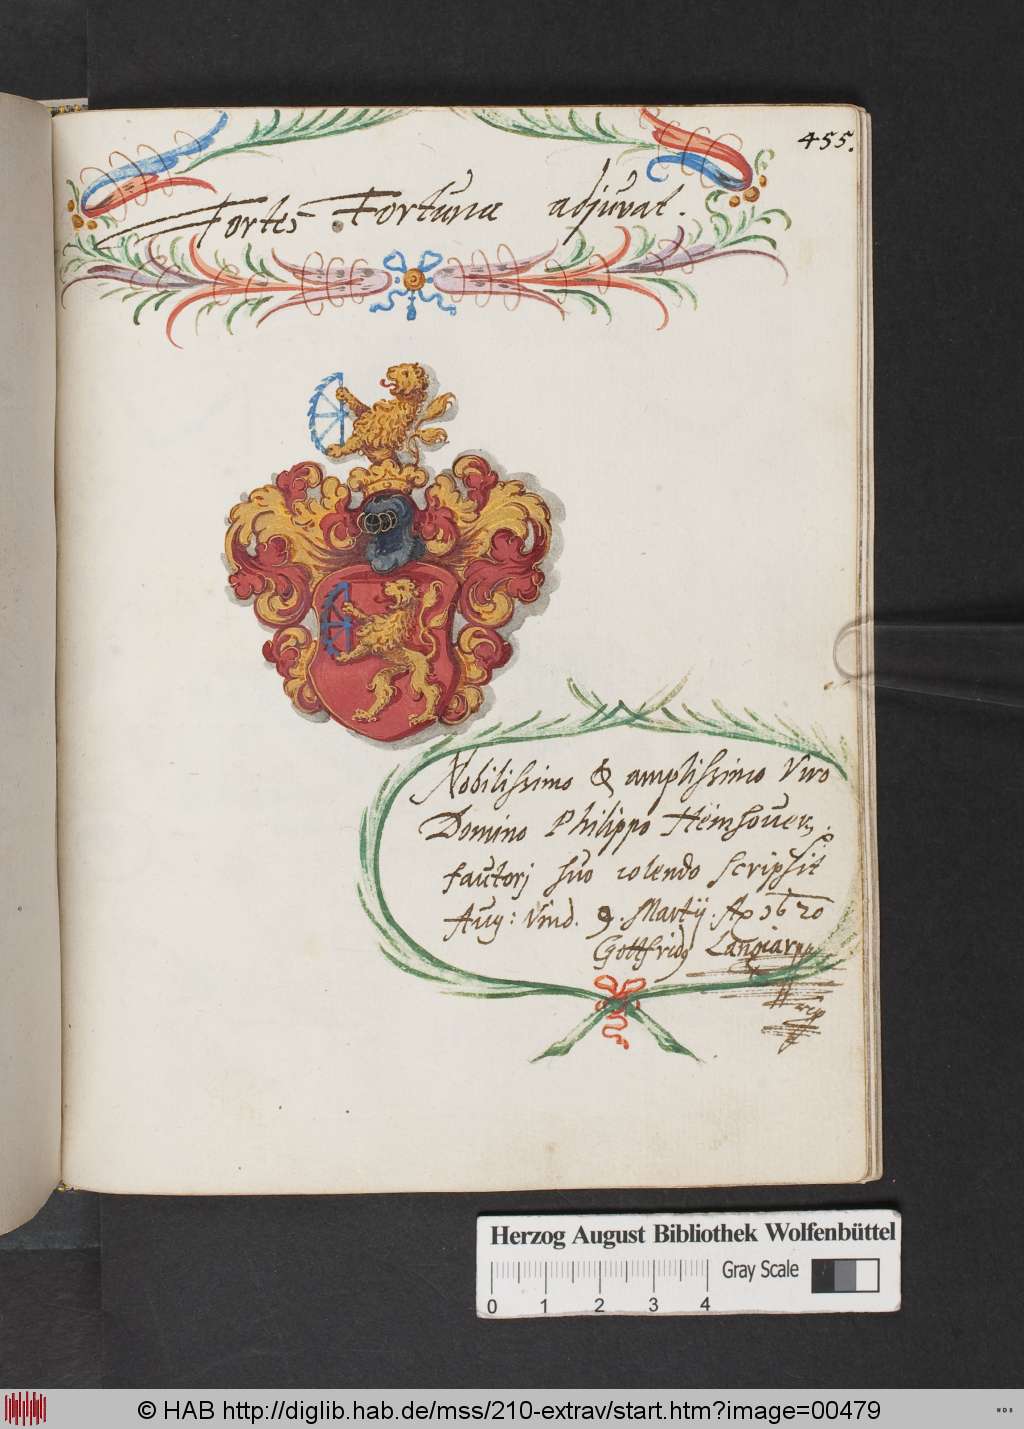 455.
Fortes Fortuna adjuvat.
Nobilissimo & amplissimo Viro
Domino Philippo
fautorj suo colendo scripsit
Aug: Vind. 9. Martij. Aº 1620
Gottfridg
Herzog August Bibliothek Wolfenbüttel
Gray Scale
0 1 2 3 4
© HAB http://diglib.hab.de/mss/210-extrav/start.htm?image=00479
HAB